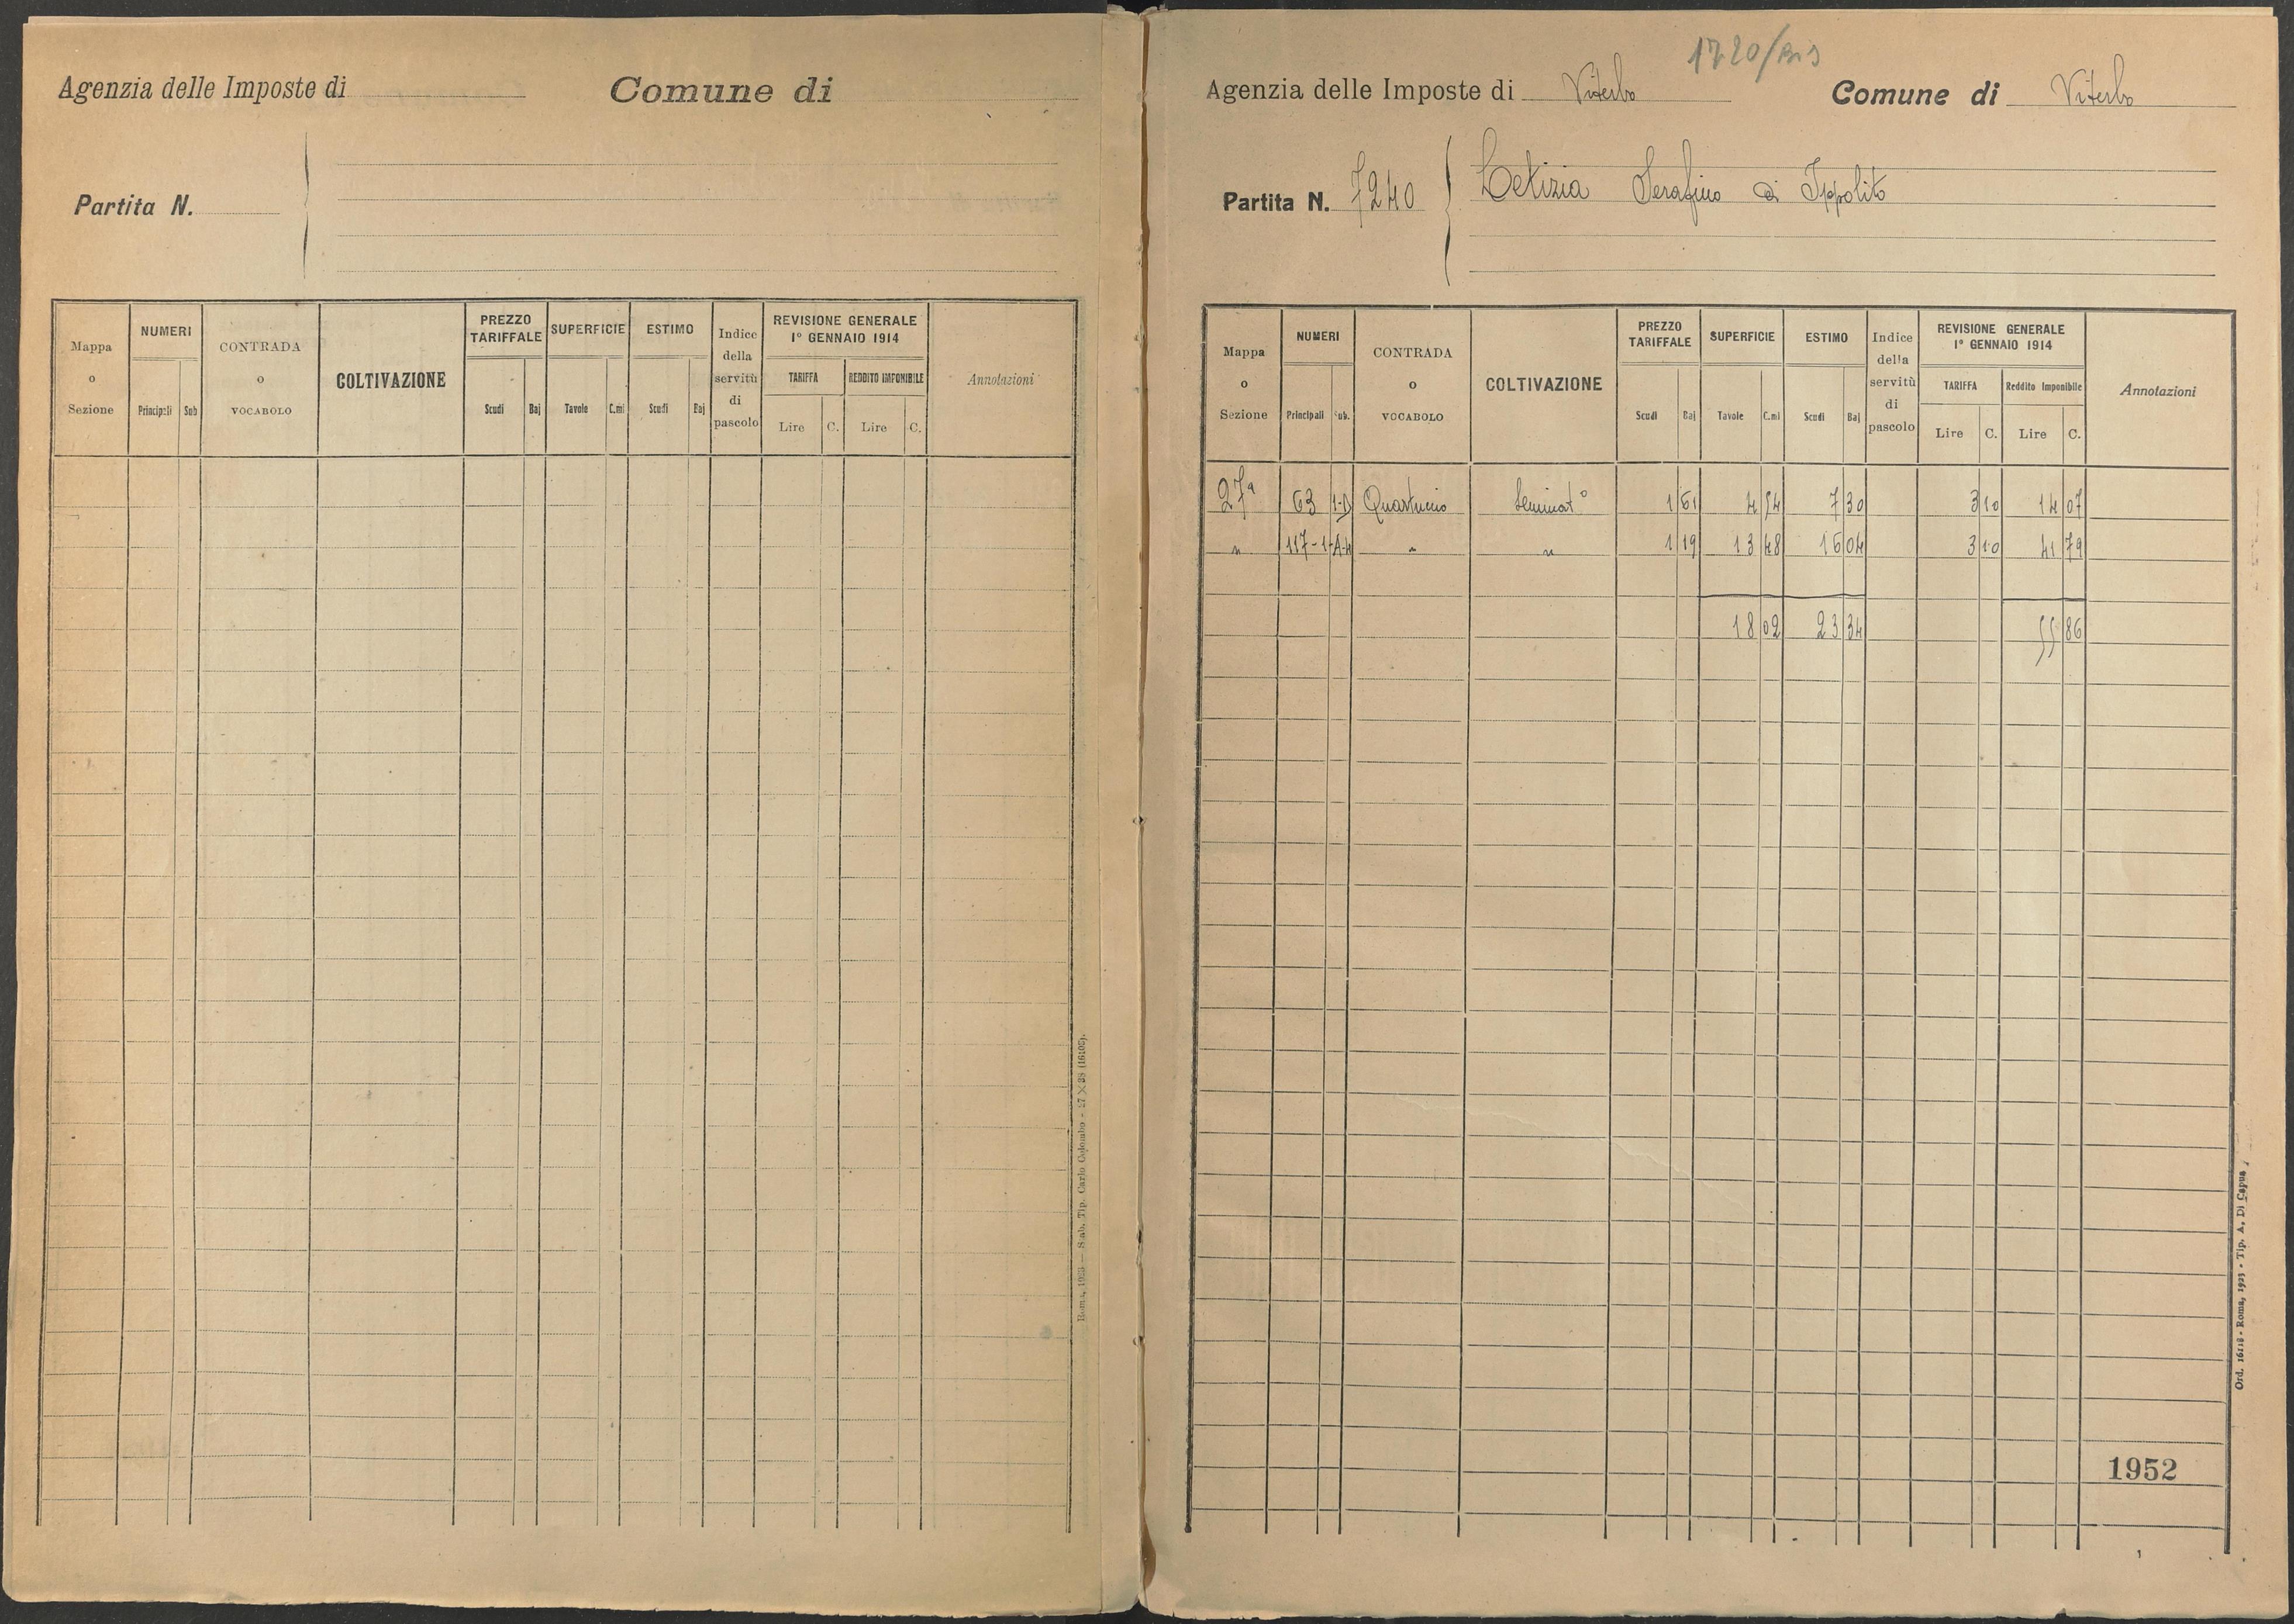 Agenzia delle Imposte di Comune di
Partita N.
Mappa o Sezione NUMERI Principali Sub CONTRADA o VOCABOLO COLTIVAZIONE PREZZO TARIFFALE Scudi Baj SUPERFICIE Tavole C.mi ESTIMO Scudi Baj Indice della servitù di pascolo REVISIONE GENERALE 1° GENNAIO 1914 TARIFFA Lire C. REDDITO IMPONIBILE Lire C. Annotazioni
Roma, 1923 — Stab. Tip. Carlo Colombo - 27 × 38 (16105).
1720/Bis
Agenzia delle Imposte di Viterbo Comune di Viterbo
Partita N. 7240 Letizia Serafino di Ippolito
Mappa o Sezione NUMERI Principali Sub. CONTRADA o VOCABOLO COLTIVAZIONE PREZZO TARIFFALE Scudi Baj SUPERFICIE Tavole C.mi ESTIMO Scudi Baj Indice della servitù di pascolo REVISIONE GENERALE 1° GENNAIO 1914 TARIFFA Lire C. Reddito Imponibile Lire C. Annotazioni
27ª 63 1-D Quartuccio Seminatº 1 61 4 54 7 30 3 10 14 07
" 117-1-A-4 " " 1 19 13 48 16 04 3 10 41 79
18 02 23 34 55 86
1952
Ord. 16118 - Roma, 1923 - Tip. A. Di Capua